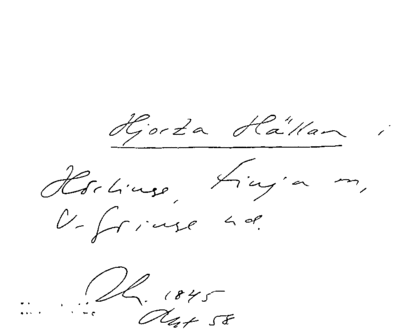 Hjorta Hällan i
Hörlinge, Finja m,
V-Göinge hd.
1845
Avt 58